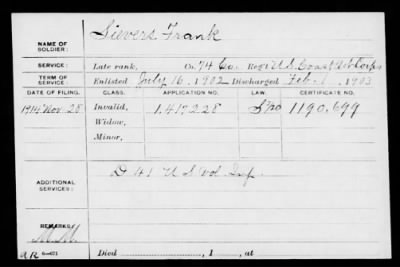 NAME OF SOLDIER: Sievers, Frank
SERVICE: Late rank, Co. 74 Co., Reg't U.S. Coast Art Corps
TERM OF SERVICE: Enlisted July 16, 1902 Discharged Feb , 1903
DATE OF FILING. CLASS. APPLICATION NO. LAW. CERTIFICATE NO.
1914 Nov. 28 Invalid, 1,417,228 1190,699
Widow,
Minor,
ADDITIONAL SERVICES: D 41 U S Vol Inf.
REMARKS:
Died , 1 , at